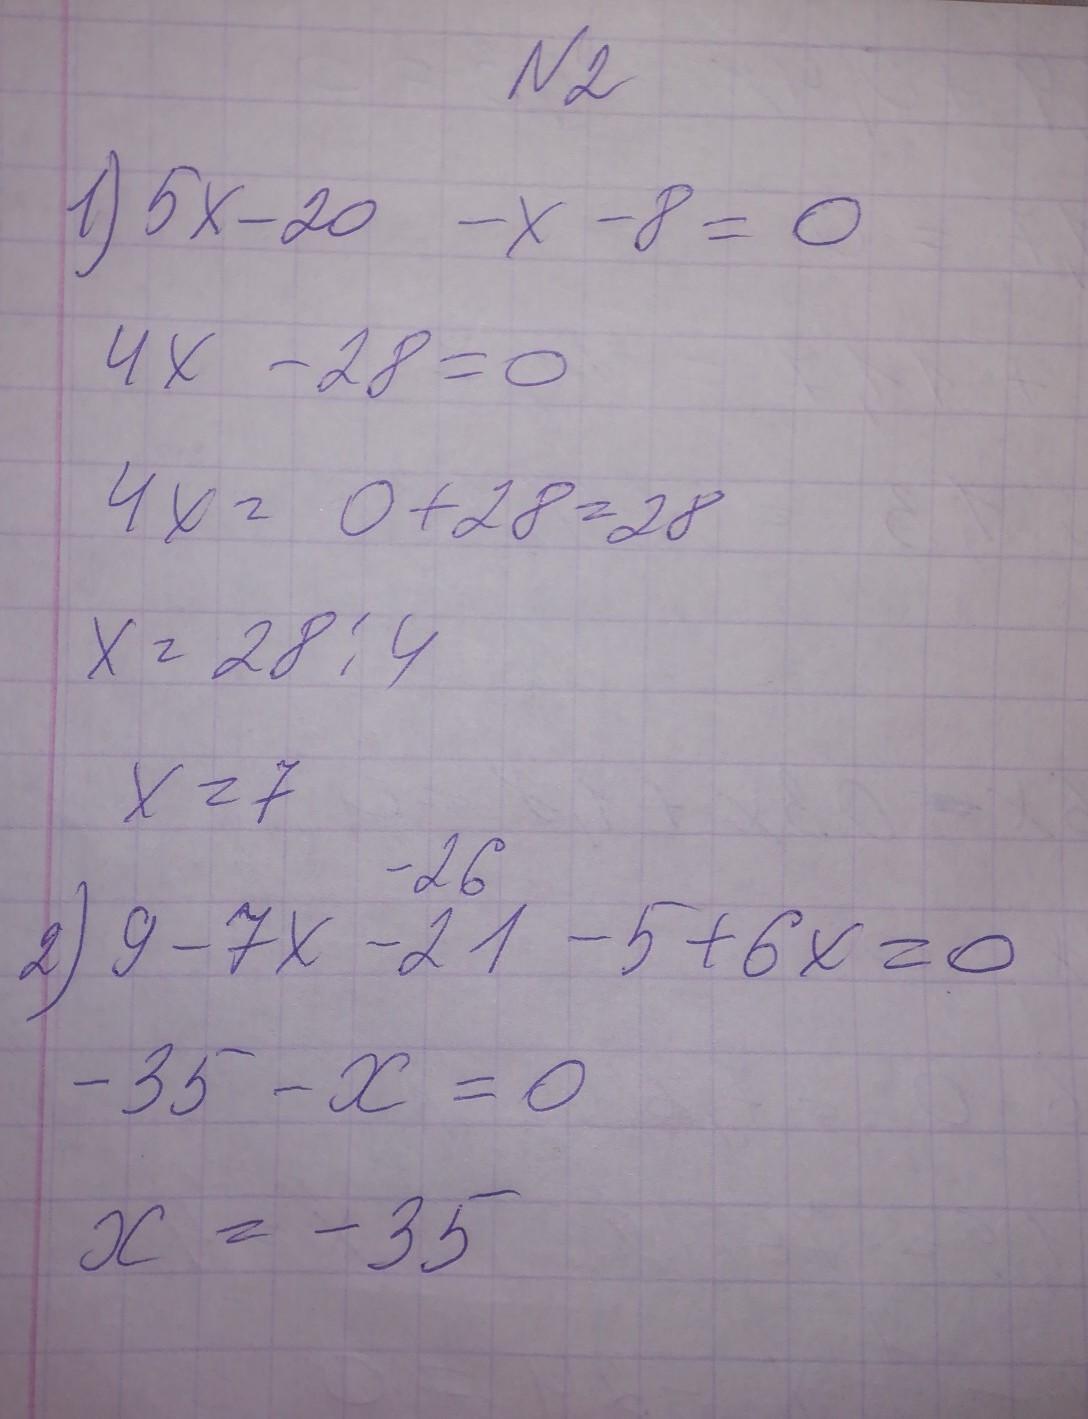 N2
1) 5x-20 -x -8 = 0
4x -28=0
4x= 0+28=28
x= 28:4
x=7
-26
2) 9-7x -21 -5+6x=0
-35 -x =0
x = -35